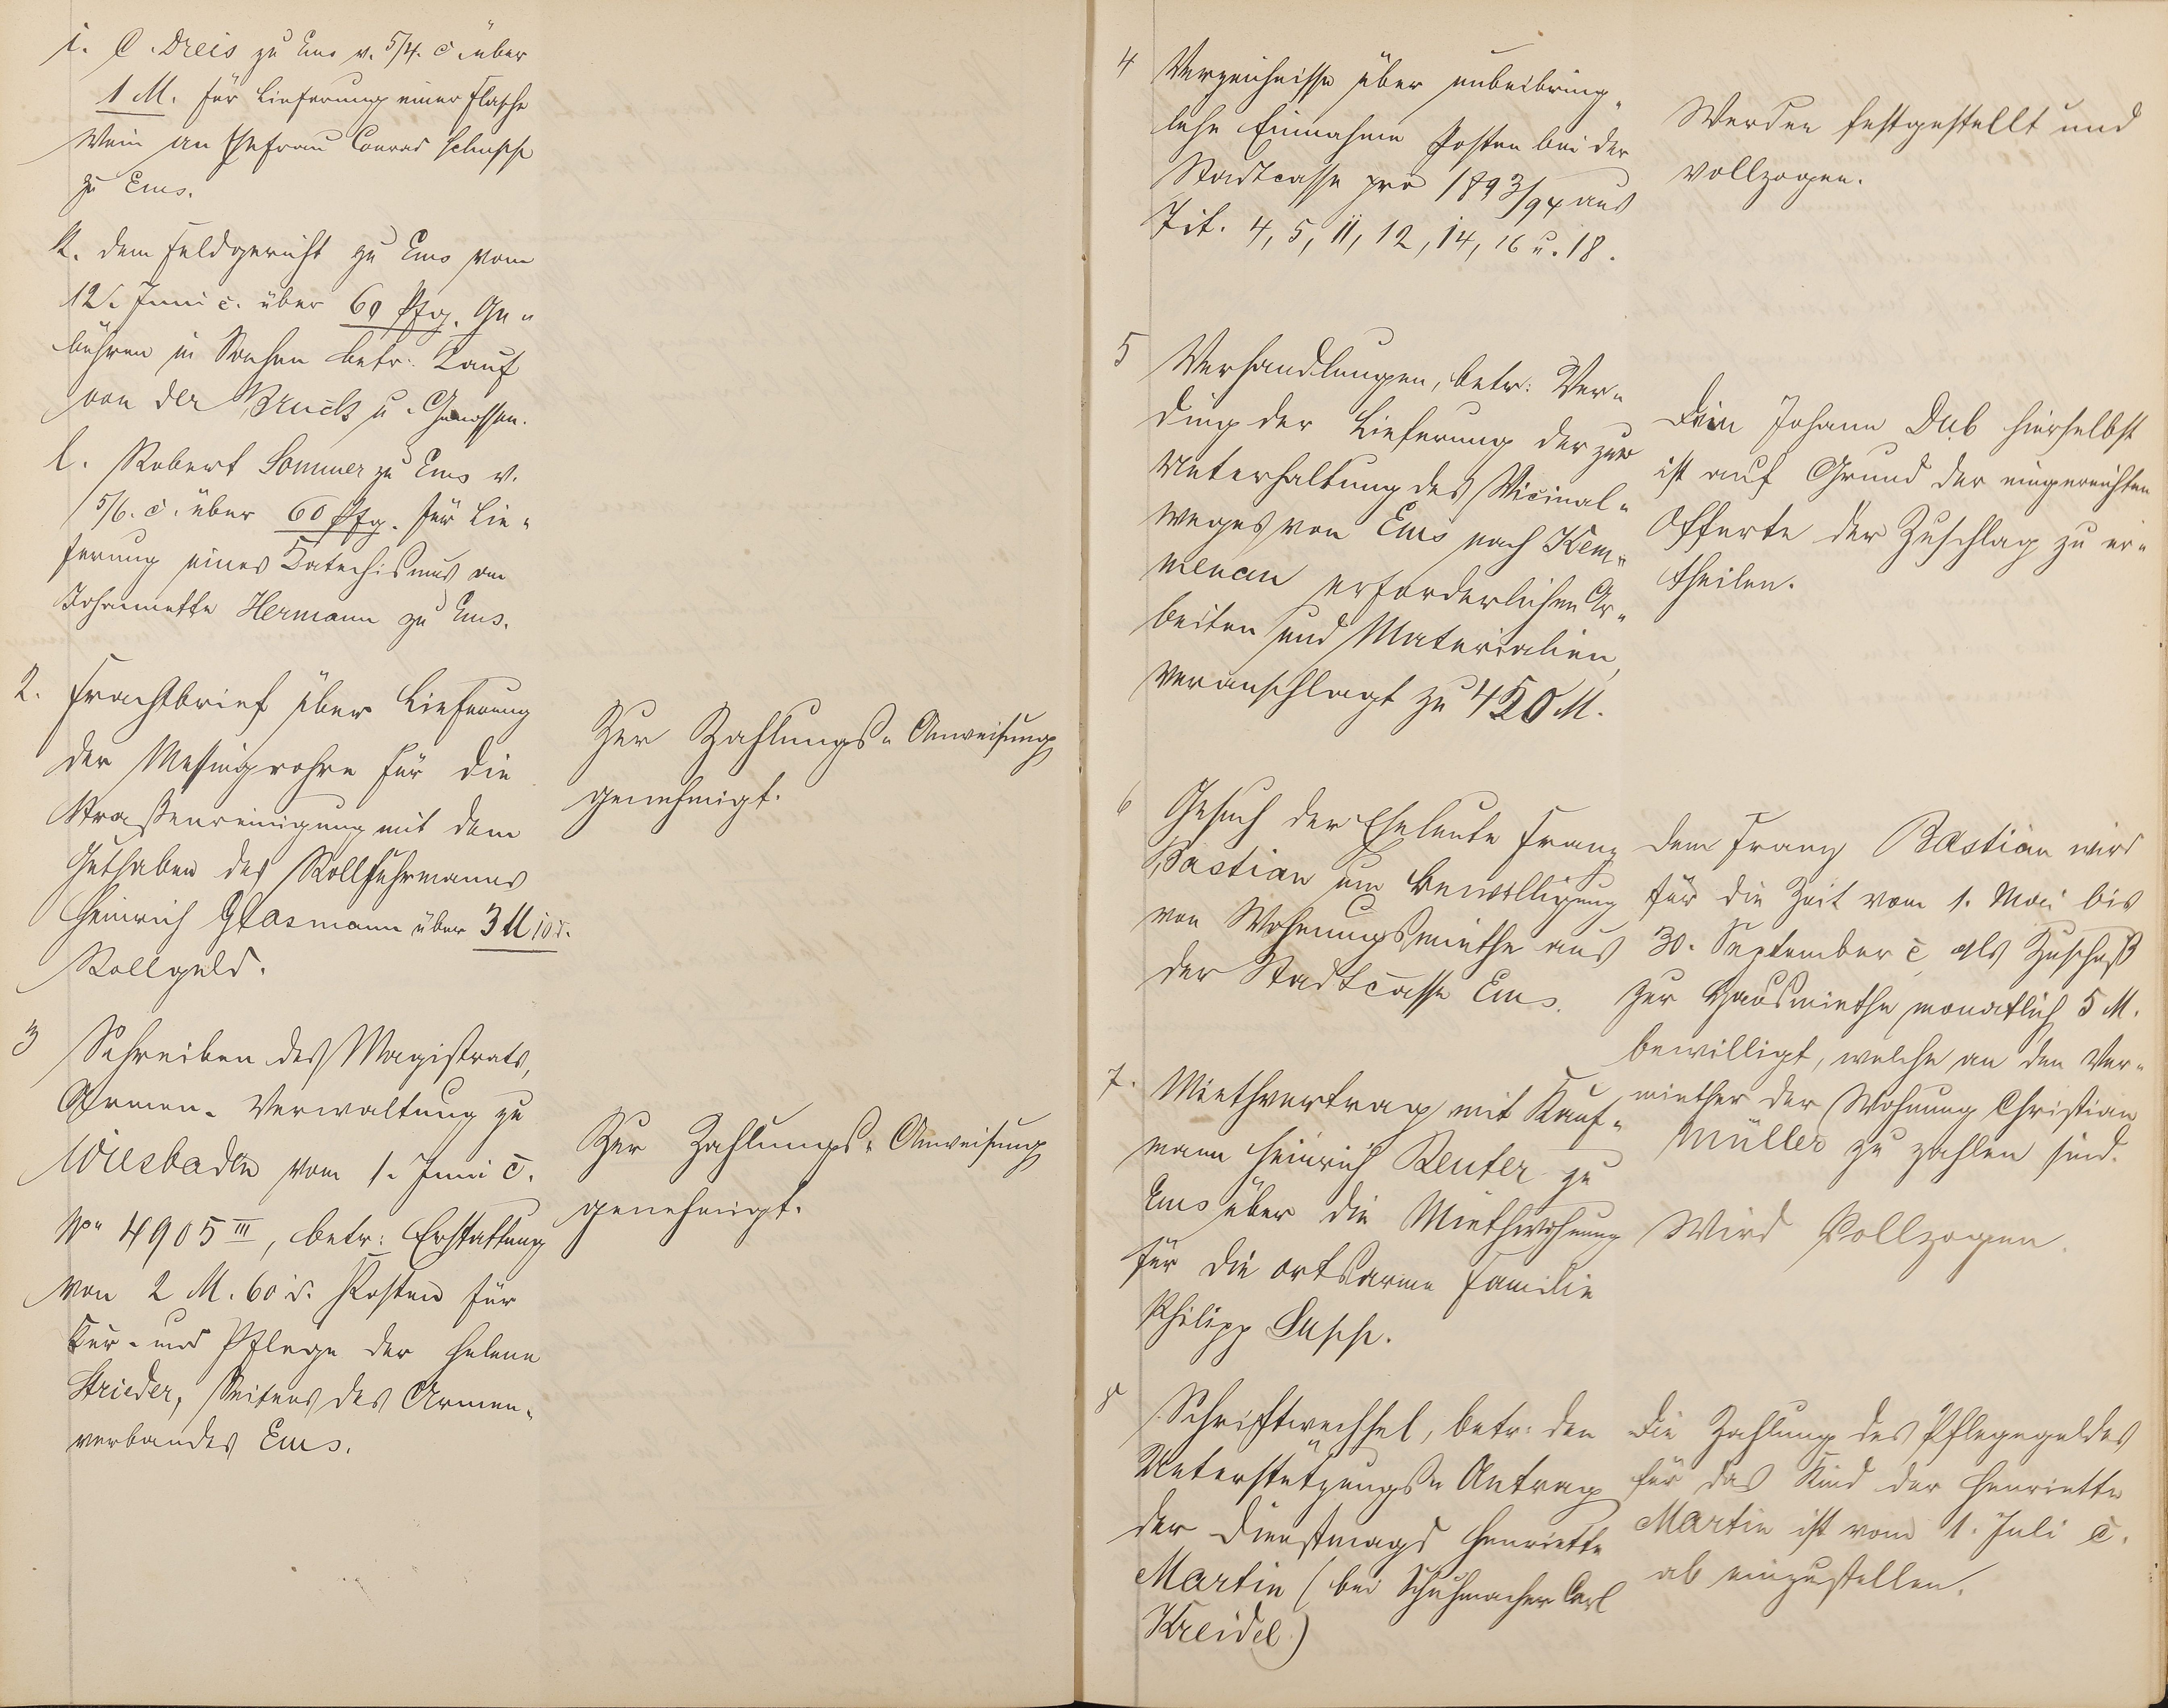 i. C. Dreis zu Ems v. 5/4. c. über
1 M. für Lieferung einer Flasche
Wein an Ehefrau Conrad Schupp
zu Ems.
k. dem Feldgericht zu Ems vom
12. Juni c. über 60 Pfg. Ge„
bühren in Sachen betr. Kauf
von der Bruck u. Genossen.
l. Robert Sommer zu Ems v.
15/6. c. über 60 Pfg. für Lie„
ferung eines Katechismus an
Johannette Hermann zu Ems.
2. Frachtbrief über Lieferung
der Messingrohre für die
Straßenreinigung mit dem
Guthaben des Rollfuhrmanns
Heinrich Glasmann über 3 M 10 d.
Rollgeld.
Zur Zahlungs„Anweisung
genehmigt.
3 Schreiben des Magistrats,
Armen„Verwaltung zu
Wiesbaden vom 1. Juni c.
No 4905 III, betr: Erstattung
von 2 M. 60 d. Kosten für
Kur- und Pflege der Helene
Strieder, Seitens des Armen„
verbandes Ems.
Zur Zahlungs„Anweisung
genehmigt.
4 Verzeichnisse über unbeibring„
liche Einnahme Posten bei der
Stadtcasse pro 1893/94 aus
Tit. 4, 5, 11, 12, 14, 16 u. 18.
Werden festgestellt und
vollzogen.
5 Verhandlungen, betr: Ver„
ding der Lieferung der zur
Unterhaltung des Vicinal„
weges von Ems nach Kem„
menau erforderlichen Ar„
beiten und Materialien,
veranschlagt zu 450 M.
Dem Johann Dub hierselbst
ist auf Grund der eingereichten
Offerte der Zuschlag zu er„
theilen.
6 Gesuch der Eheleute Franz
Bastian um Bewilligung
von Wohnungsmiethe aus
der Stadtcasse Ems.
Dem Franz Bastian wird
für die Zeit vom 1. Mai bis
30. September c. als Zuschuß
zur Hausmiethe monatlich 5 M.
bewilligt, welche an den Ver„
miether der Wohnung Christian
Müller zu zahlen sind.
7. Miethvertrag mit Kauf„
mann Heinrich Reuter zu
Ems über die Miethwohnung
für die ortsarme Familie
Philipp Susch.
Wird Vollzogen.
8 Schriftwechsel, betr: den
Unterstützungs„Antrag
der Dienstmagd Henriette
Martin (bei Schuhmacher Carl
Kreidel)
Die Zahlung des Pflegegeldes
für das Kind der Henriette
Martin ist vom 1. Juli c.
ab einzustellen.